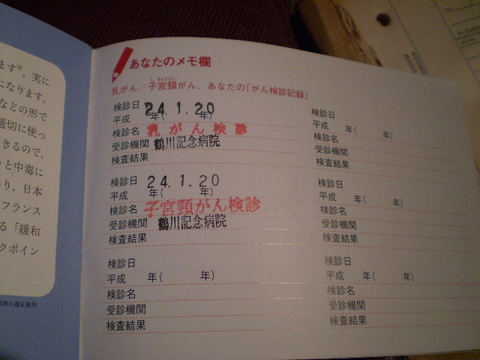 ます®。実に
になります。
などの形で
適切に使っ
きるので、
と中毒に
り、日本
フランス
る「緩和
クポイン
あなたのメモ欄
乳がん/子宮頸がん、あなたの「がん検診記録」
しきゅうけい
検診日 24.1.20
平成 年( 年)
検診名 乳がん検診
受診機関 鶴川記念病院
検査結果
検診日 24.1.20
平成 年( 年)
検診名 子宮頸がん検診
受診機関 鶴川記念病院
検査結果
検診日
平成 年( 年)
検診名
受診機関
検査結果
検診日
平成 年( 年)
検診名
受診機関
検査結果
検診日
平成 年( 年)
検診名
受診機関
検査結果
検診日
平成 年( 年)
検診名
受診機関
検査結果